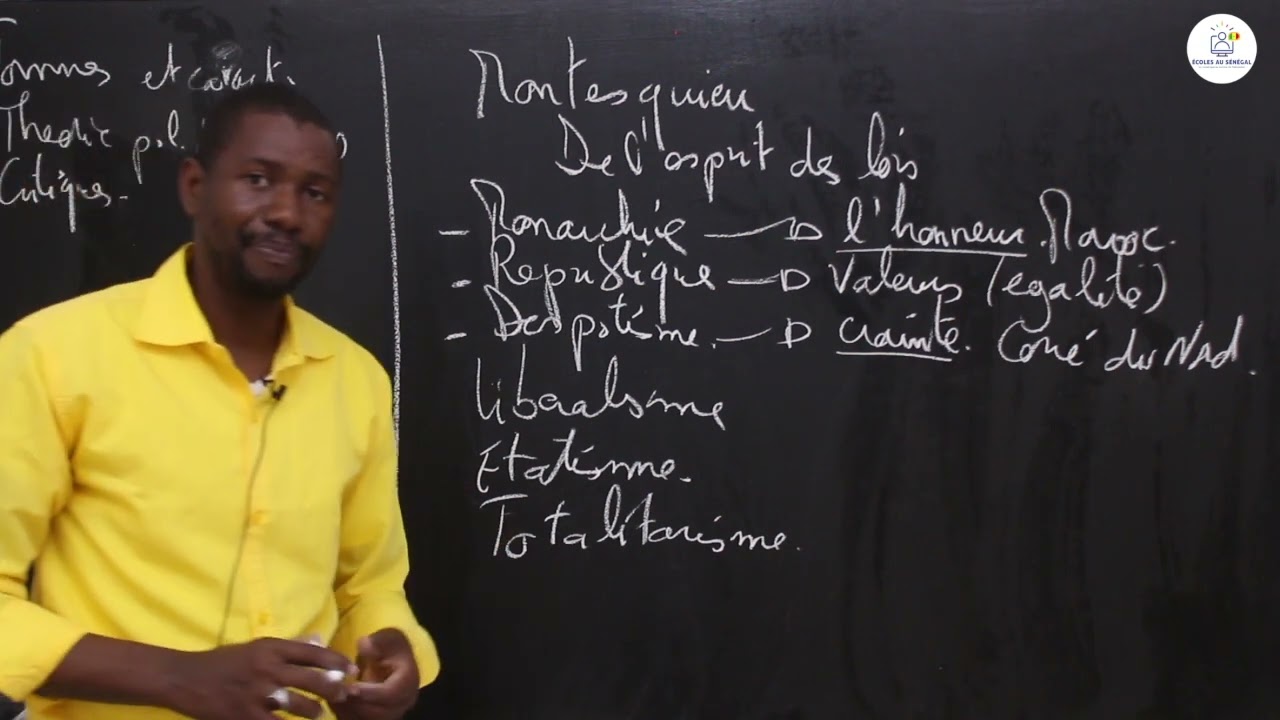 Formes et caract.
Théorie pol.
Critiques.
Montesquieu
De l'esprit des lois
- Monarchie → l'honneur. Maroc.
- République → Valeurs (égalité)
- Despotisme. → crainte. Coré du Nrd.
Libéralisme
Etatisme.
Totalitarisme.
ÉCOLES AU SÉNÉGAL